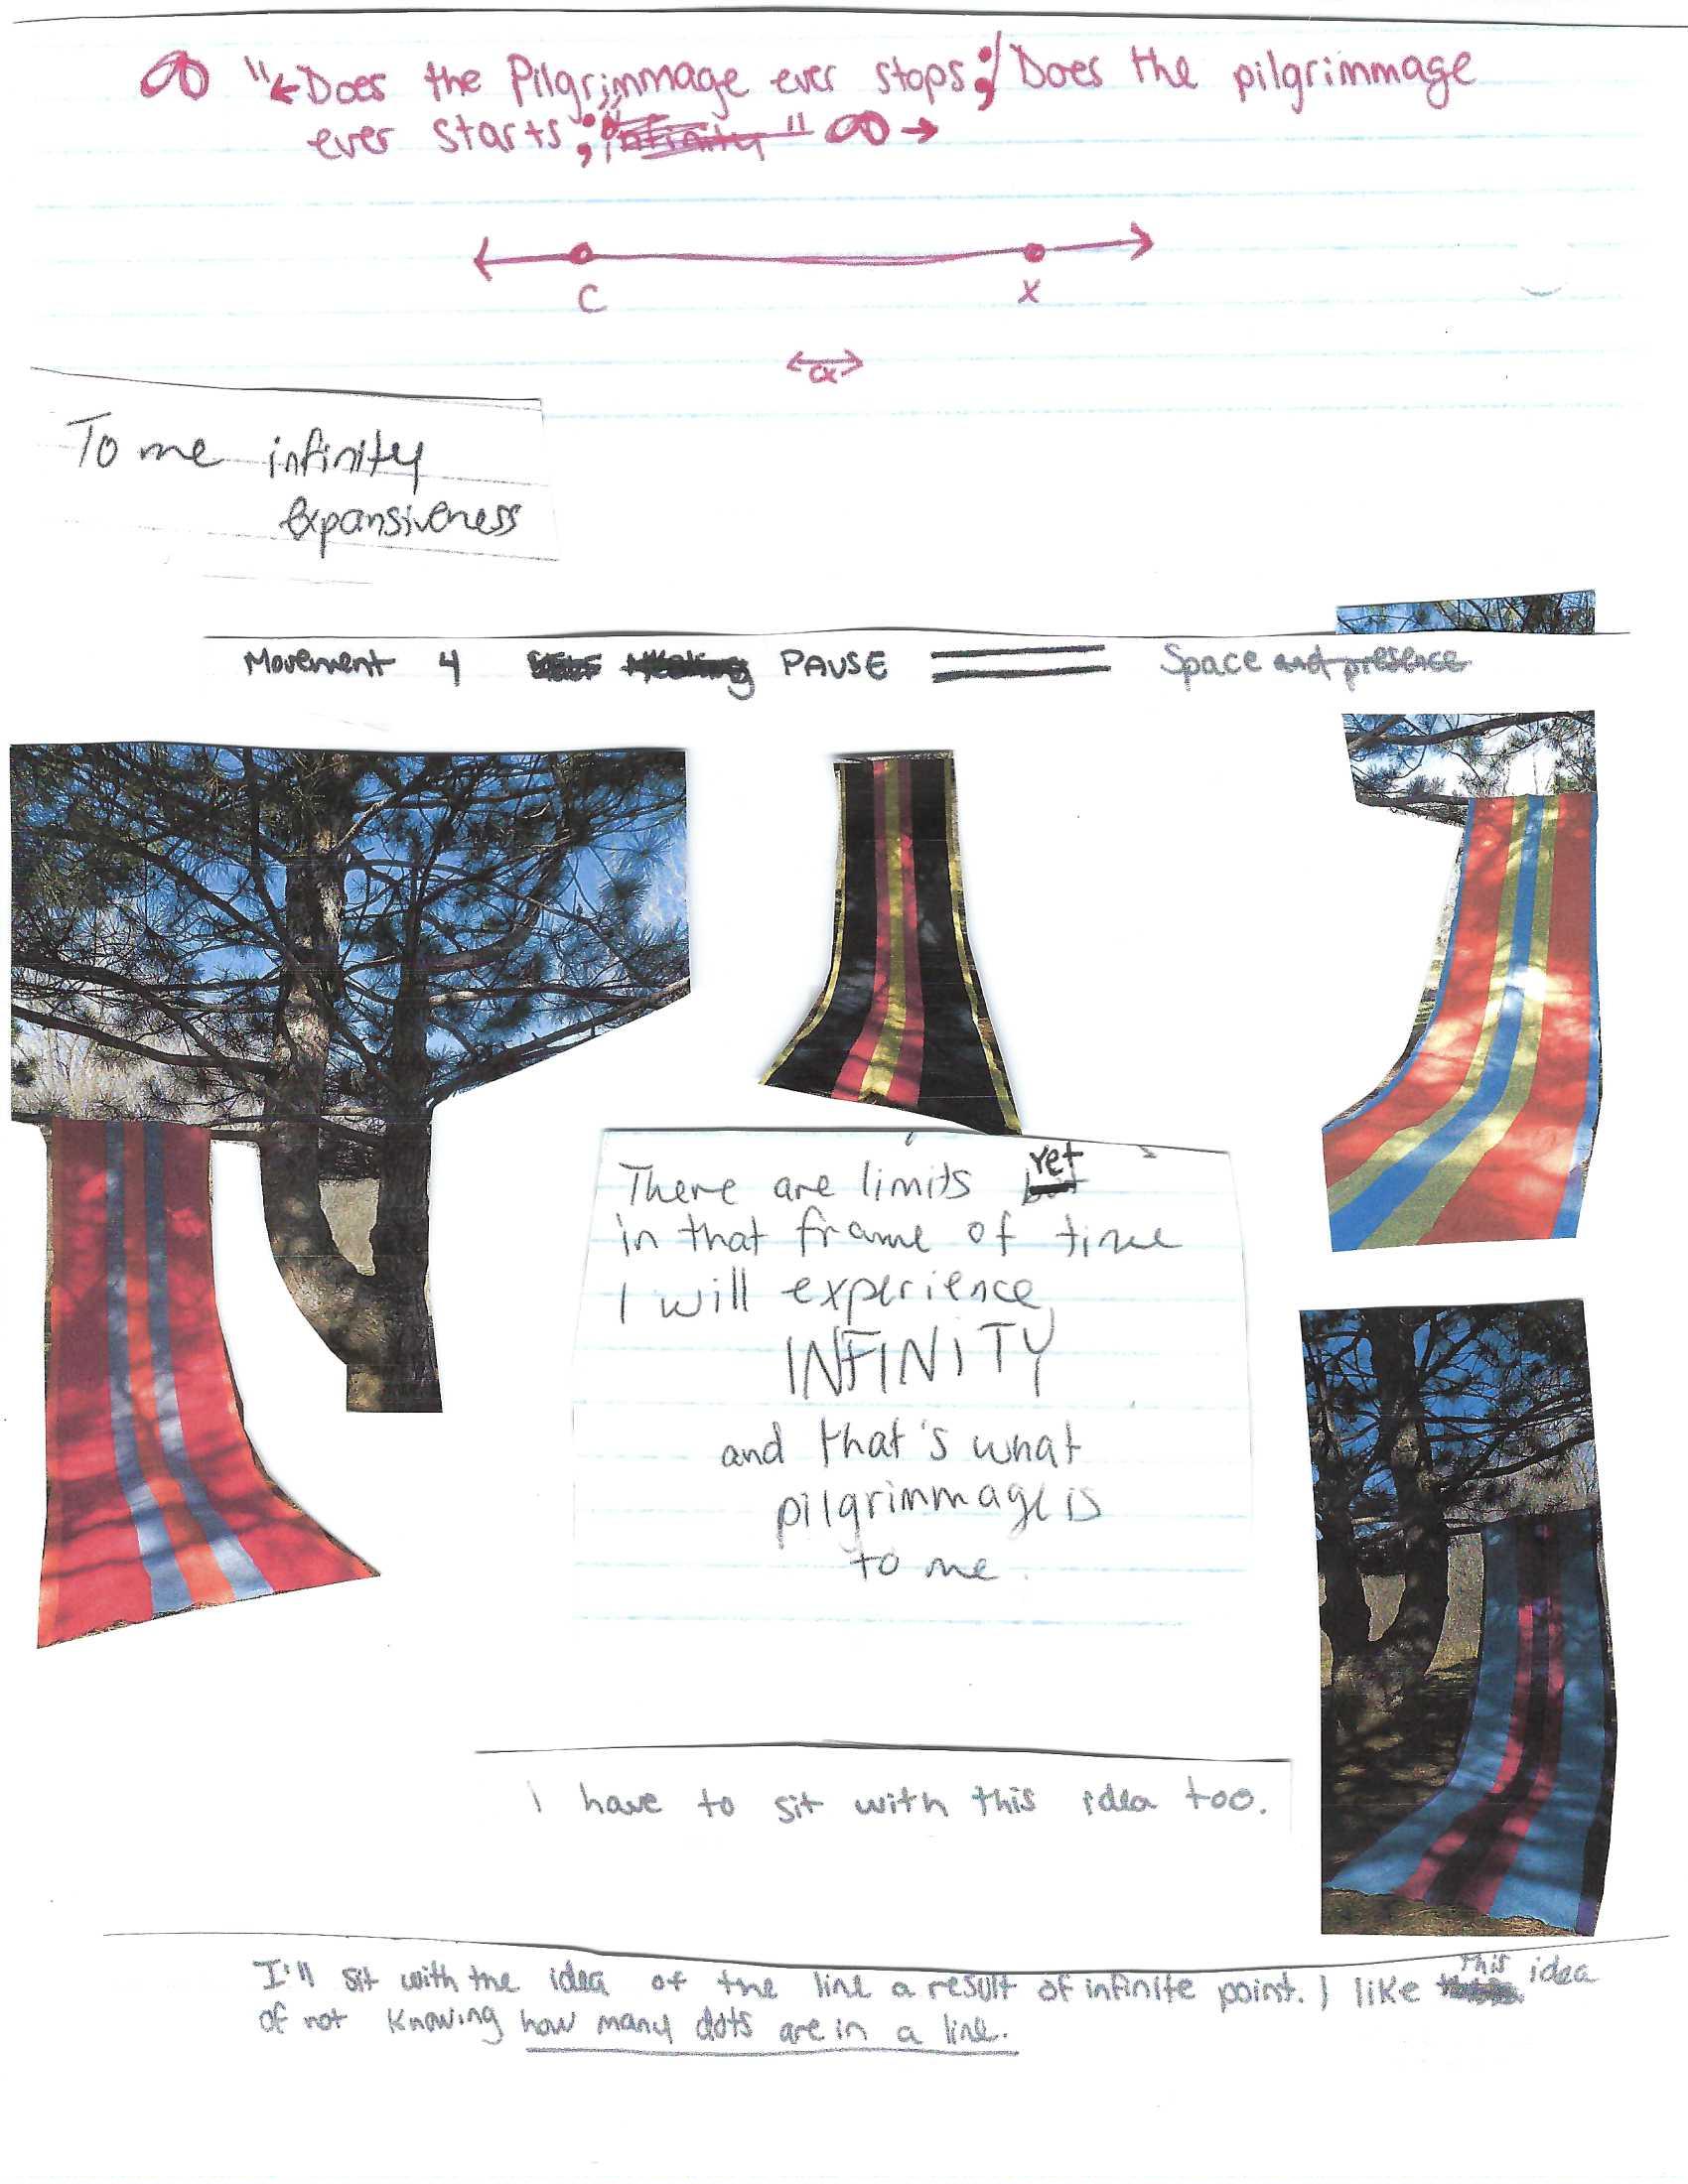 ∞ "←Does the Pilgrimmage ever stops;/ Does the pilgrimmage
ever starts; infinity" ∞→
C X
CX
To me infinity
expansiveness
Movement 4 PAUSE Space and presence
There are limits Yet
in that frame of time
I will experience
INFINITY
and that's what
pilgrimmage is
to me.
I have to sit with this idea too.
I'll sit with the idea of the line a result of infinite point. I like This idea
of not knowing how many dots are in a line.